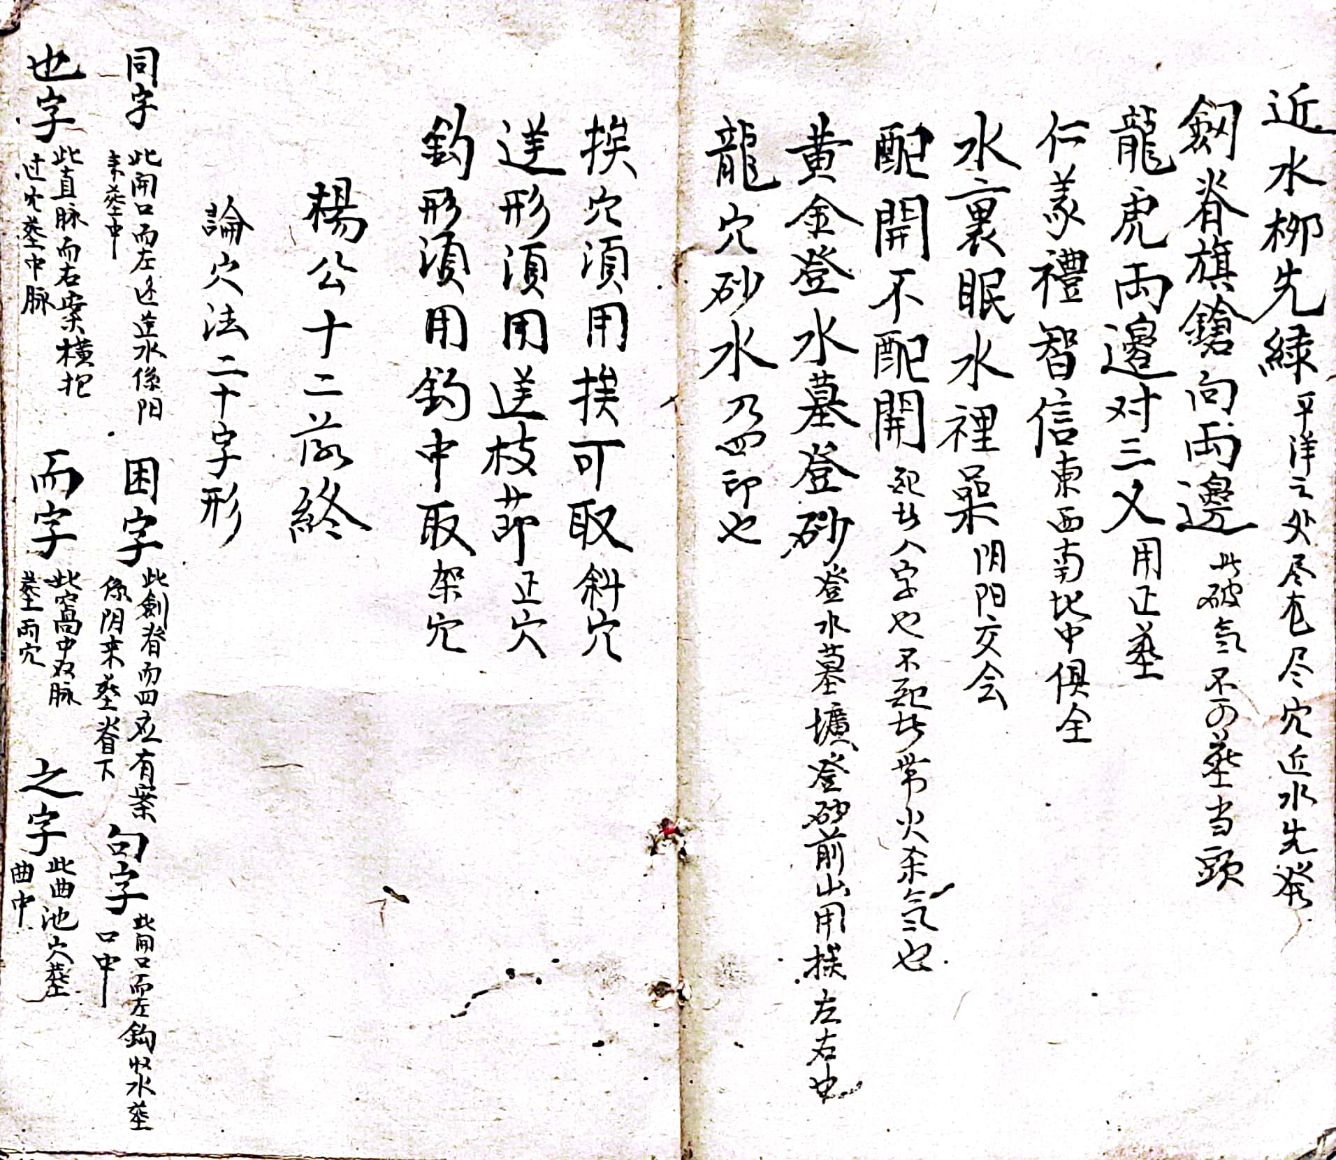 近水柳先緑平洋之处尽包尽穴近水先發
剱脊旗鎗向両邊此破氣不可塟当頭
龍虎両邊对三乂用正塟
仁義禮智信東西南北中俱全
水裏眠水裡杲阴阳交会
配開不配開配此八字也不配此帶火杀氣也
黄金登水墓登砂登水墓壙登砂前山用挨左右也
龍穴砂水乃四印也
挨穴湏用挨可取斜穴
送形湏用送枝節正穴
鈎形湏用鈎中取架穴
楊公十二落終
論穴法二十字形
同字此開口而左边逆水係阳來塟中
困字此劍脊而四應有案係阴来塟脊下
句字此開口而左鈎收水塟口中
也字此直脉而右案橫抱过穴塟中脉
而字此窩中双脉塟両穴
之字此曲池穴塟曲中